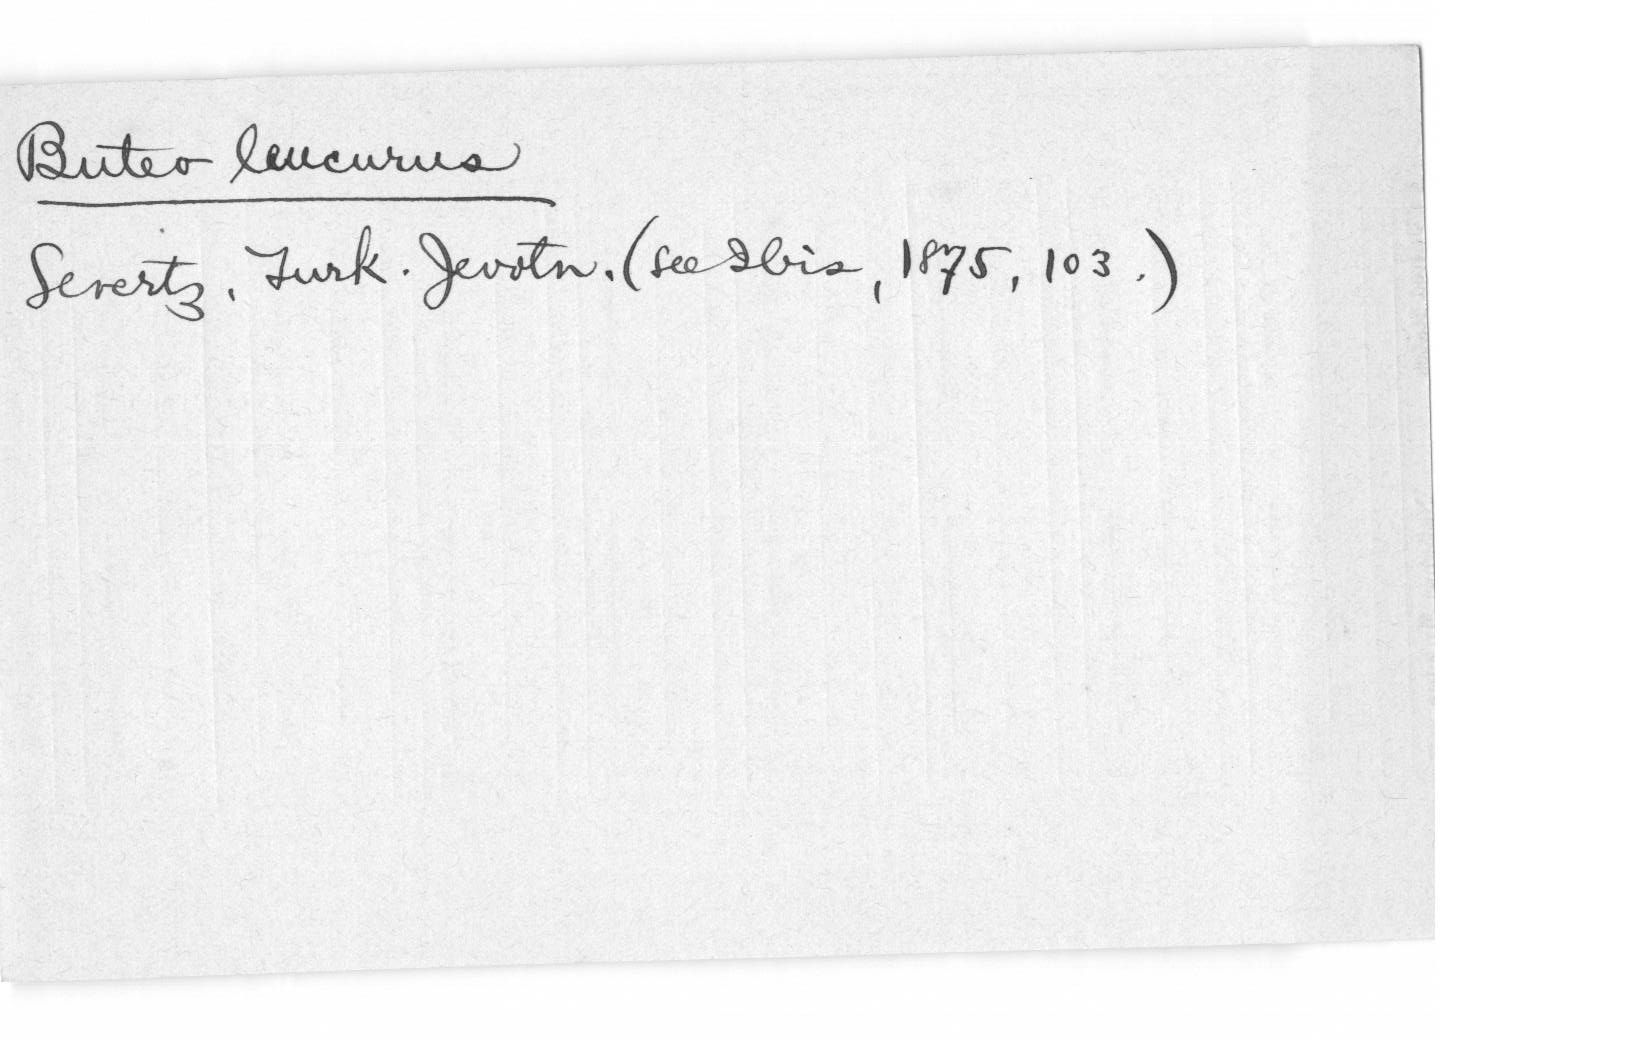 Buteo leucurus
Severtz, Turk. Jevotn. (see Ibis, 1875, 103.)